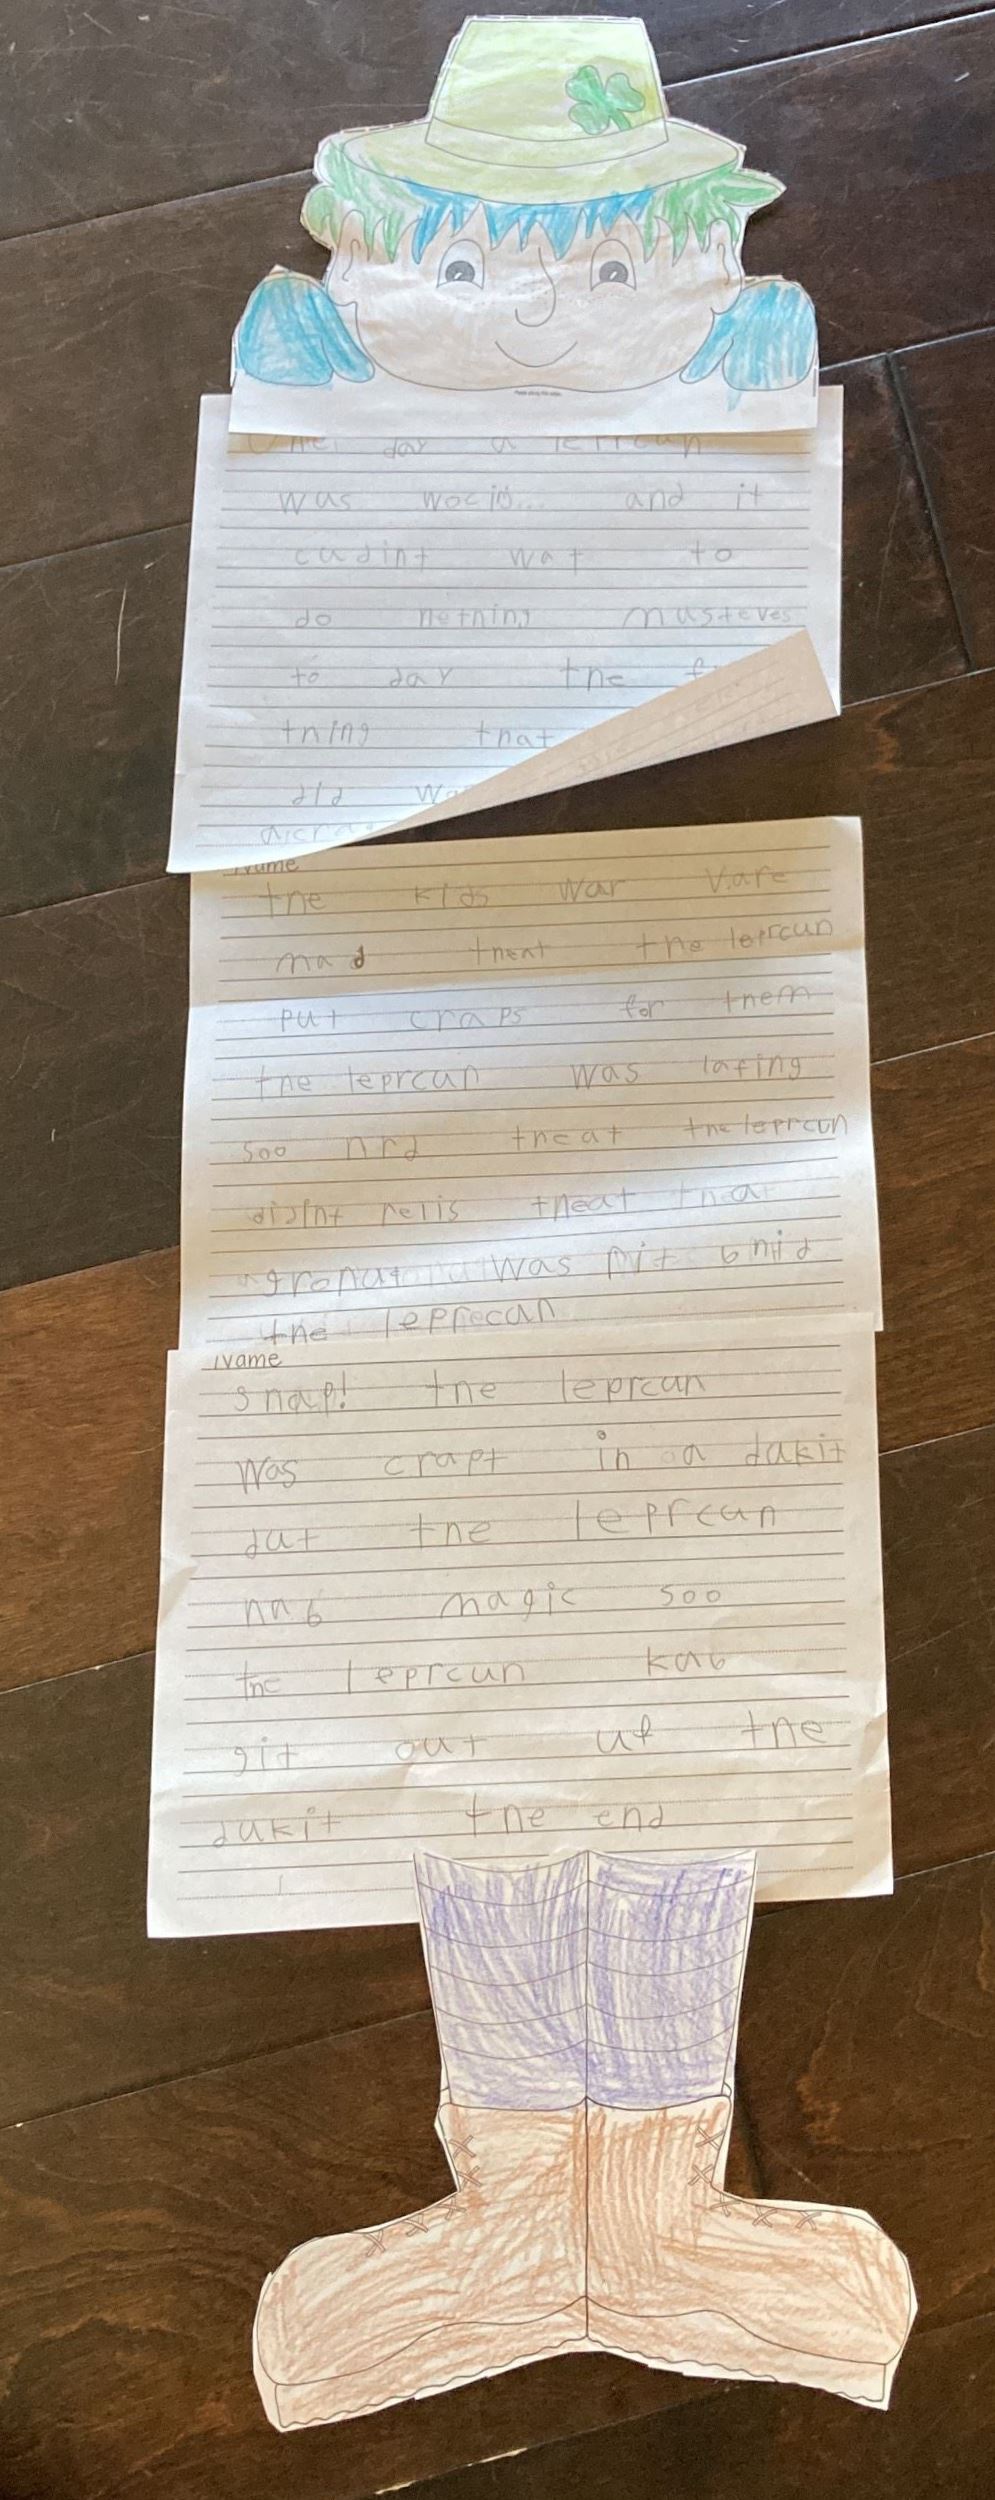 One day a leprcun
was wocig... and it
cudint wat to
do nething musteves
to day the
thing that
did
Name
the kids war vare
mad theat the leprcun
put craps for them
the leprcun was lafing
soo hrd theat the leprcun
didint relis theat theat
a gronut was rit bhid
the leprecan
Name
snap! the leprcun
was crapt in a dukit
dut the leprcun
hab magic soo
the leprcun kab
git out uf the
dukit the end